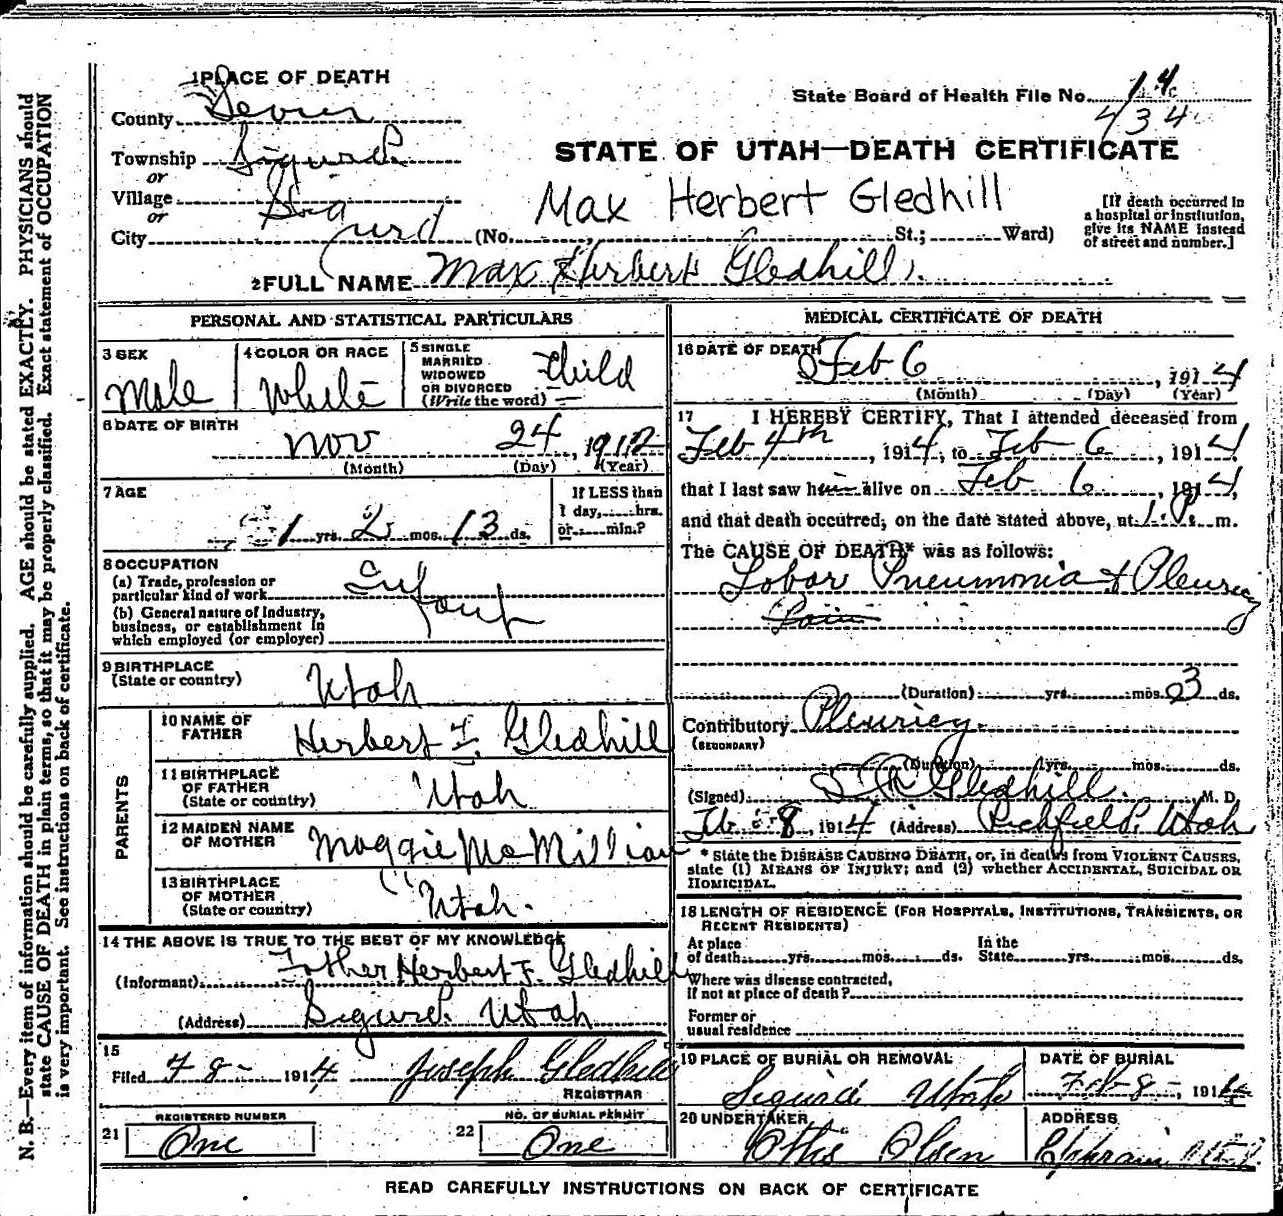 1 PLACE OF DEATH
County Sevier
Township Sigurd
or
Village Sigurd
or
City (No. St.; Ward)
State Board of Health File No. 14
434
STATE OF UTAH—DEATH CERTIFICATE
Max Herbert Gledhill
[If death occurred in
a hospital or institution,
give its NAME instead
of street and number.]
2 FULL NAME Max Herbert Gledhill
PERSONAL AND STATISTICAL PARTICULARS
3 SEX
Male
4 COLOR OR RACE
White
5 SINGLE
MARRIED
WIDOWED
OR DIVORCED
(Write the word)
Child
6 DATE OF BIRTH
Nov 24, 1912
(Month) (Day) (Year)
7 AGE
1 yrs. 2 mos. 13 ds.
If LESS than
1 day, hrs.
or min.?
8 OCCUPATION
(a) Trade, profession or
particular kind of work
(b) General nature of industry,
business, or establishment in
which employed (or employer)
Infant
9 BIRTHPLACE
(State or country)
Utah
PARENTS
10 NAME OF
FATHER
Herbert F. Gledhill
11 BIRTHPLACE
OF FATHER
(State or country)
Utah
12 MAIDEN NAME
OF MOTHER
Maggie McMillian
13 BIRTHPLACE
OF MOTHER
(State or country)
Utah.
14 THE ABOVE IS TRUE TO THE BEST OF MY KNOWLEDGE
(Informant) Father Herbert F. Gledhill
(Address) Sigurd Utah
15
Filed 7-8- 1914 Joseph Gledhill
REGISTRAR
REGISTERED NUMBER
21 One
NO. OF BURIAL PERMIT
22 One
MEDICAL CERTIFICATE OF DEATH
16 DATE OF DEATH
Feb 6, 1914
(Month) (Day) (Year)
17 I HEREBY CERTIFY, That I attended deceased from
Feb 4th, 1914, to Feb 6, 1914,
that I last saw him alive on Feb 6, 1914,
and that death occurred, on the date stated above, at 1 P. m.
The CAUSE OF DEATH* was as follows:
Lobar Pneumonia & Pleuricy
(Duration) yrs. mos. 3 ds.
Contributory Pleuricy.
(SECONDARY)
(Duration) yrs. mos. ds.
(Signed) Gledhill. M. D.
Feb 8, 1914 (Address) Richfield, Utah
* State the DISEASE CAUSING DEATH, or, in deaths from VIOLENT CAUSES,
state (1) MEANS OF INJURY; and (2) whether ACCIDENTAL, SUICIDAL OR
HOMICIDAL.
18 LENGTH OF RESIDENCE (FOR HOSPITALS, INSTITUTIONS, TRANSIENTS, OR
RECENT RESIDENTS)
At place
of death yrs. mos. ds.
In the
State yrs. mos. ds.
Where was disease contracted,
if not at place of death?
Former or
usual residence
19 PLACE OF BURIAL OR REMOVAL
Sigurd Utah
DATE OF BURIAL
Feb-8-, 1914
20 UNDERTAKER
Otis Olsen
ADDRESS
Ephraim Utah
READ CAREFULLY INSTRUCTIONS ON BACK OF CERTIFICATE
N. B.—Every item of information should be carefully supplied. AGE should be stated EXACTLY. PHYSICIANS should
state CAUSE OF DEATH in plain terms, so that it may be properly classified. Exact statement of OCCUPATION
is very important. See instructions on back of certificate.